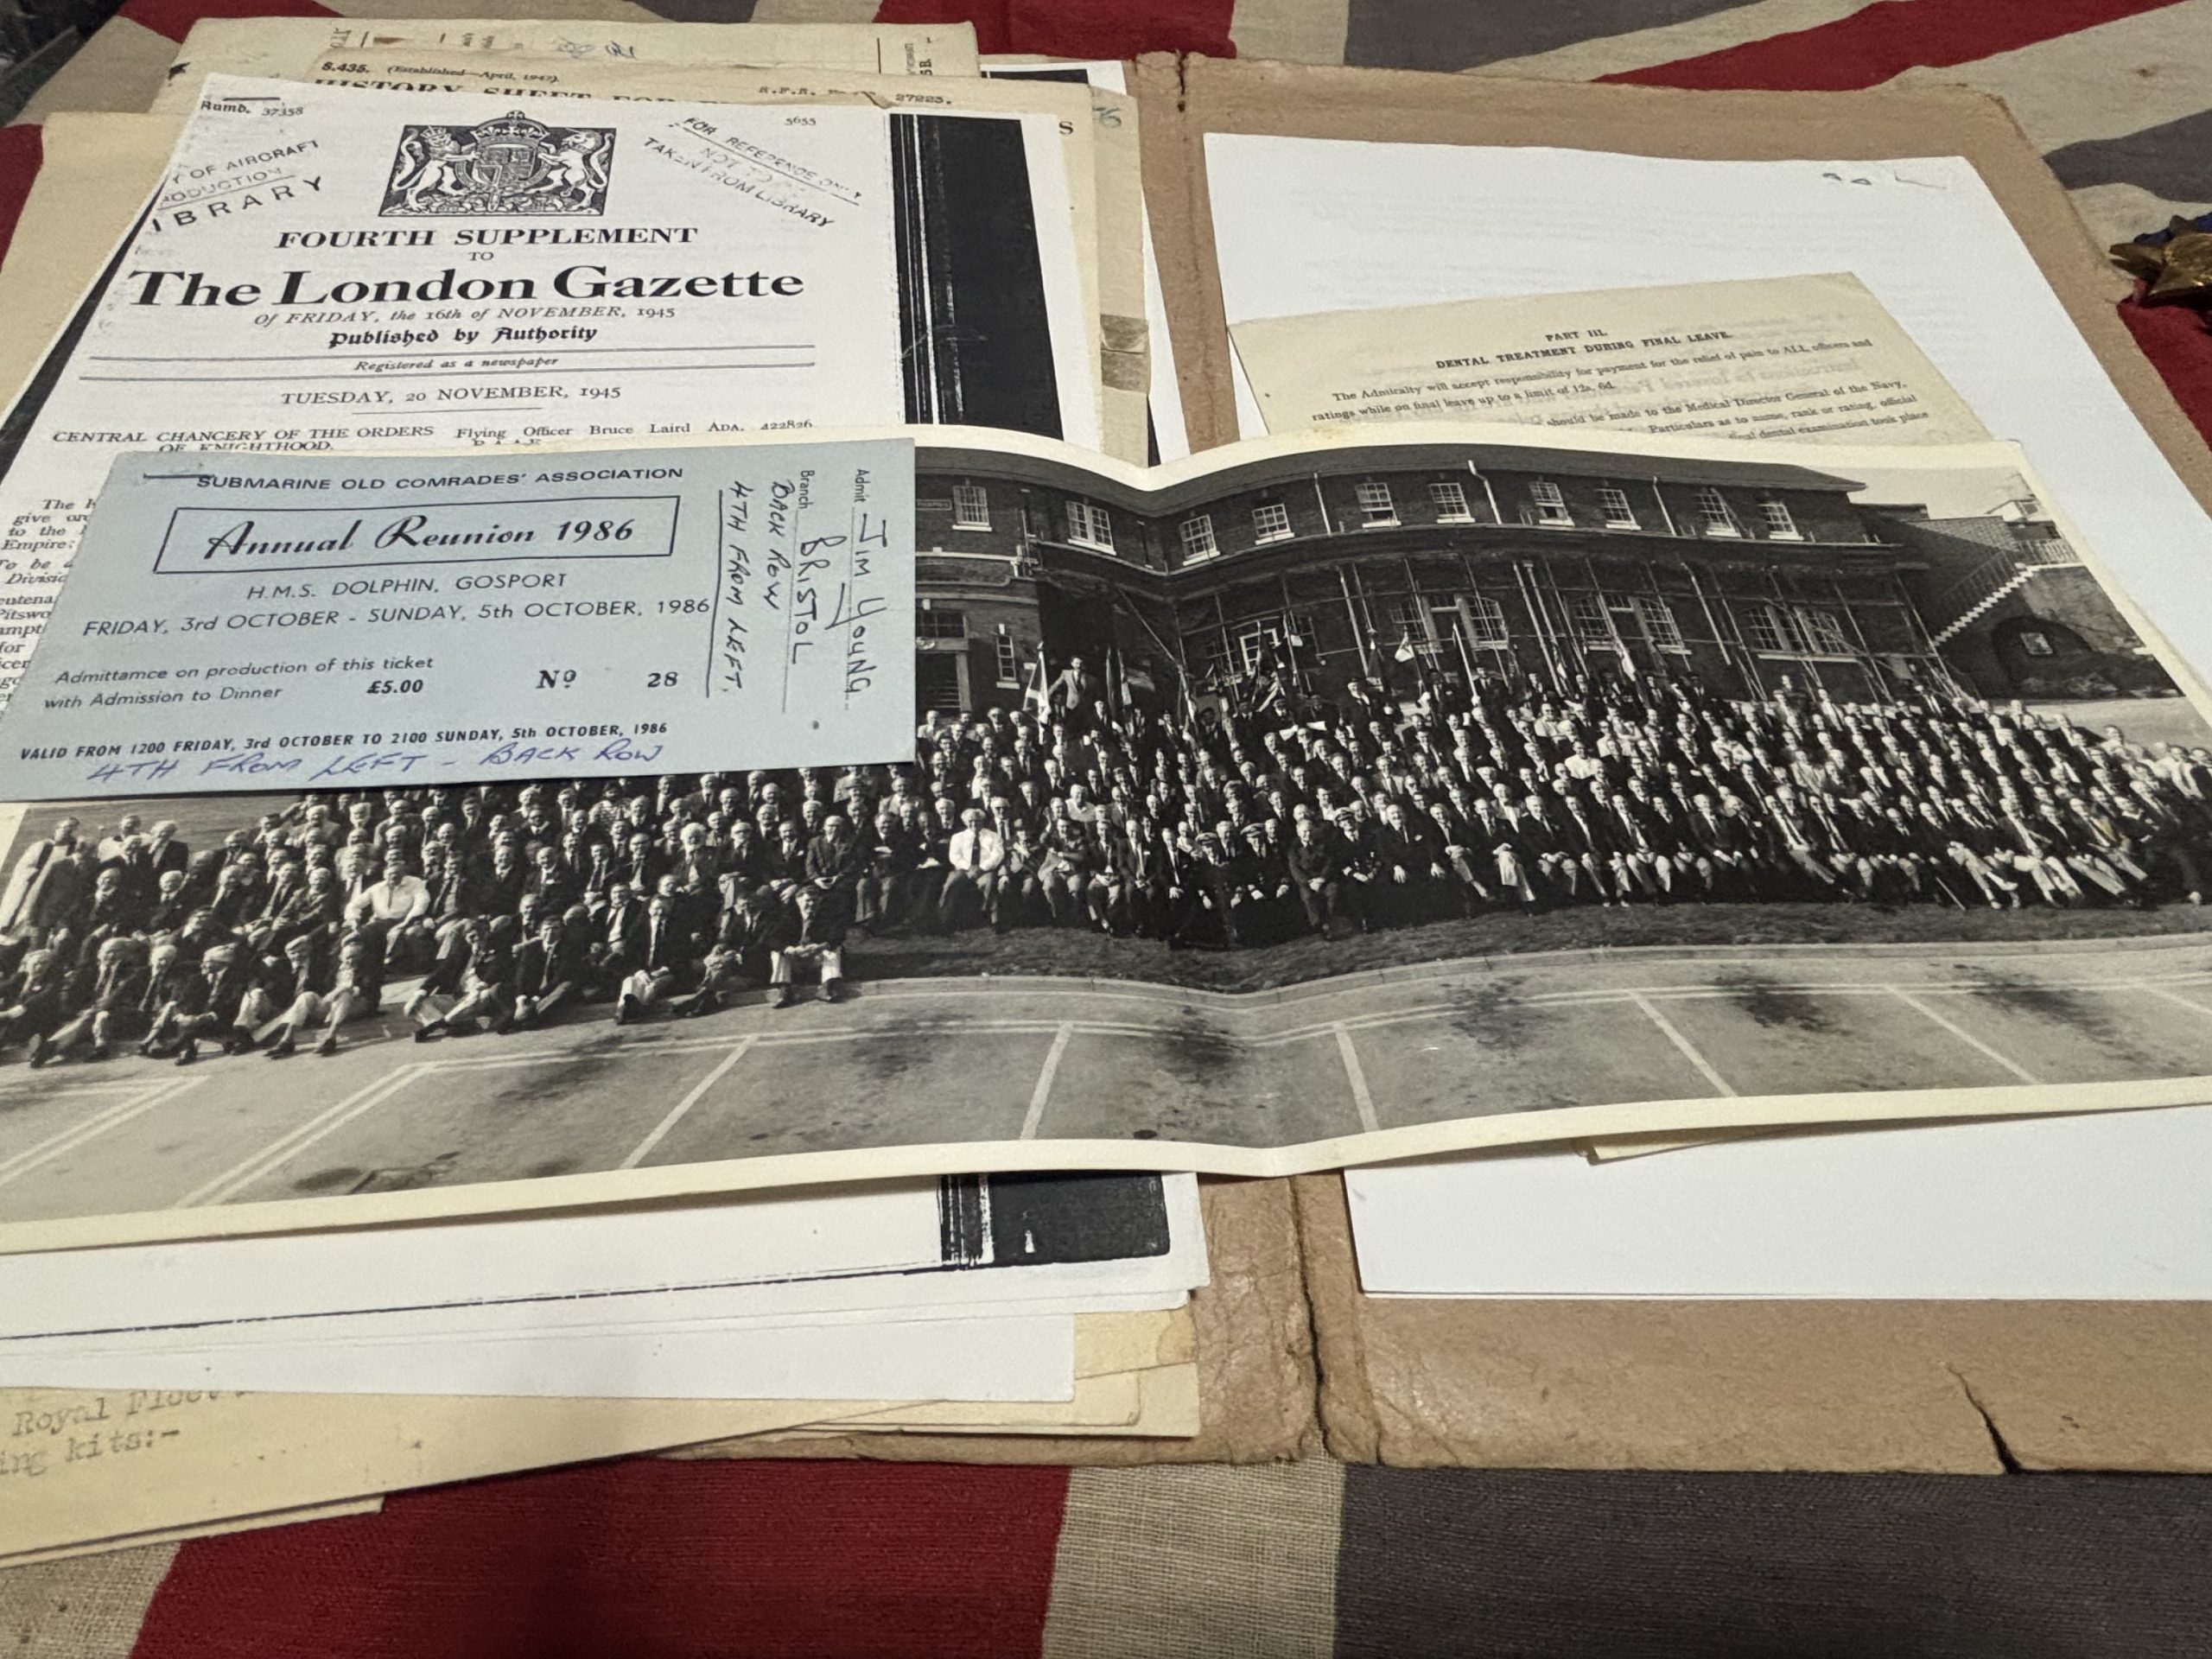 S.435. (Established—April, 1947)
HISTORY SHEET FOR
R.F.R.
27223.
S
Numb. 37358
5655
OF AIRCRAFT
PRODUCTION
LIBRARY
FOR REFERENCE ONLY
NOT
TAKEN FROM LIBRARY
FOURTH SUPPLEMENT
TO
The London Gazette
Of FRIDAY, the 16th of NOVEMBER, 1945
Published by Authority
Registered as a newspaper
TUESDAY, 20 NOVEMBER, 1945
CENTRAL CHANCERY OF THE ORDERS
OF KNIGHTHOOD.
Flying Officer Bruce Laird ADA. 422826,
The
give
to the
Empire:
To be
PART III.
DENTAL TREATMENT DURING FINAL LEAVE.
The Admiralty will accept responsibility for payment for the relief of pain to ALL officers and
ratings while on final leave up to a limit of 12s. 6d.
should be made to the Medical Director General of the Navy,
Particulars as to name, rank or rating, official
dental examination took place
SUBMARINE OLD COMRADES' ASSOCIATION
Annual Reunion 1986
H.M.S. DOLPHIN, GOSPORT
FRIDAY, 3rd OCTOBER - SUNDAY, 5th OCTOBER, 1986
Admittamce on production of this ticket
with Admission to Dinner £5.00 Nº 28
VALID FROM 1200 FRIDAY, 3rd OCTOBER TO 2100 SUNDAY, 5th OCTOBER, 1986
4TH FROM LEFT - BACK ROW
Admit JIM YOUNG
Branch BRISTOL
BACK ROW
4TH FROM LEFT.
Royal Fleet
kits:-